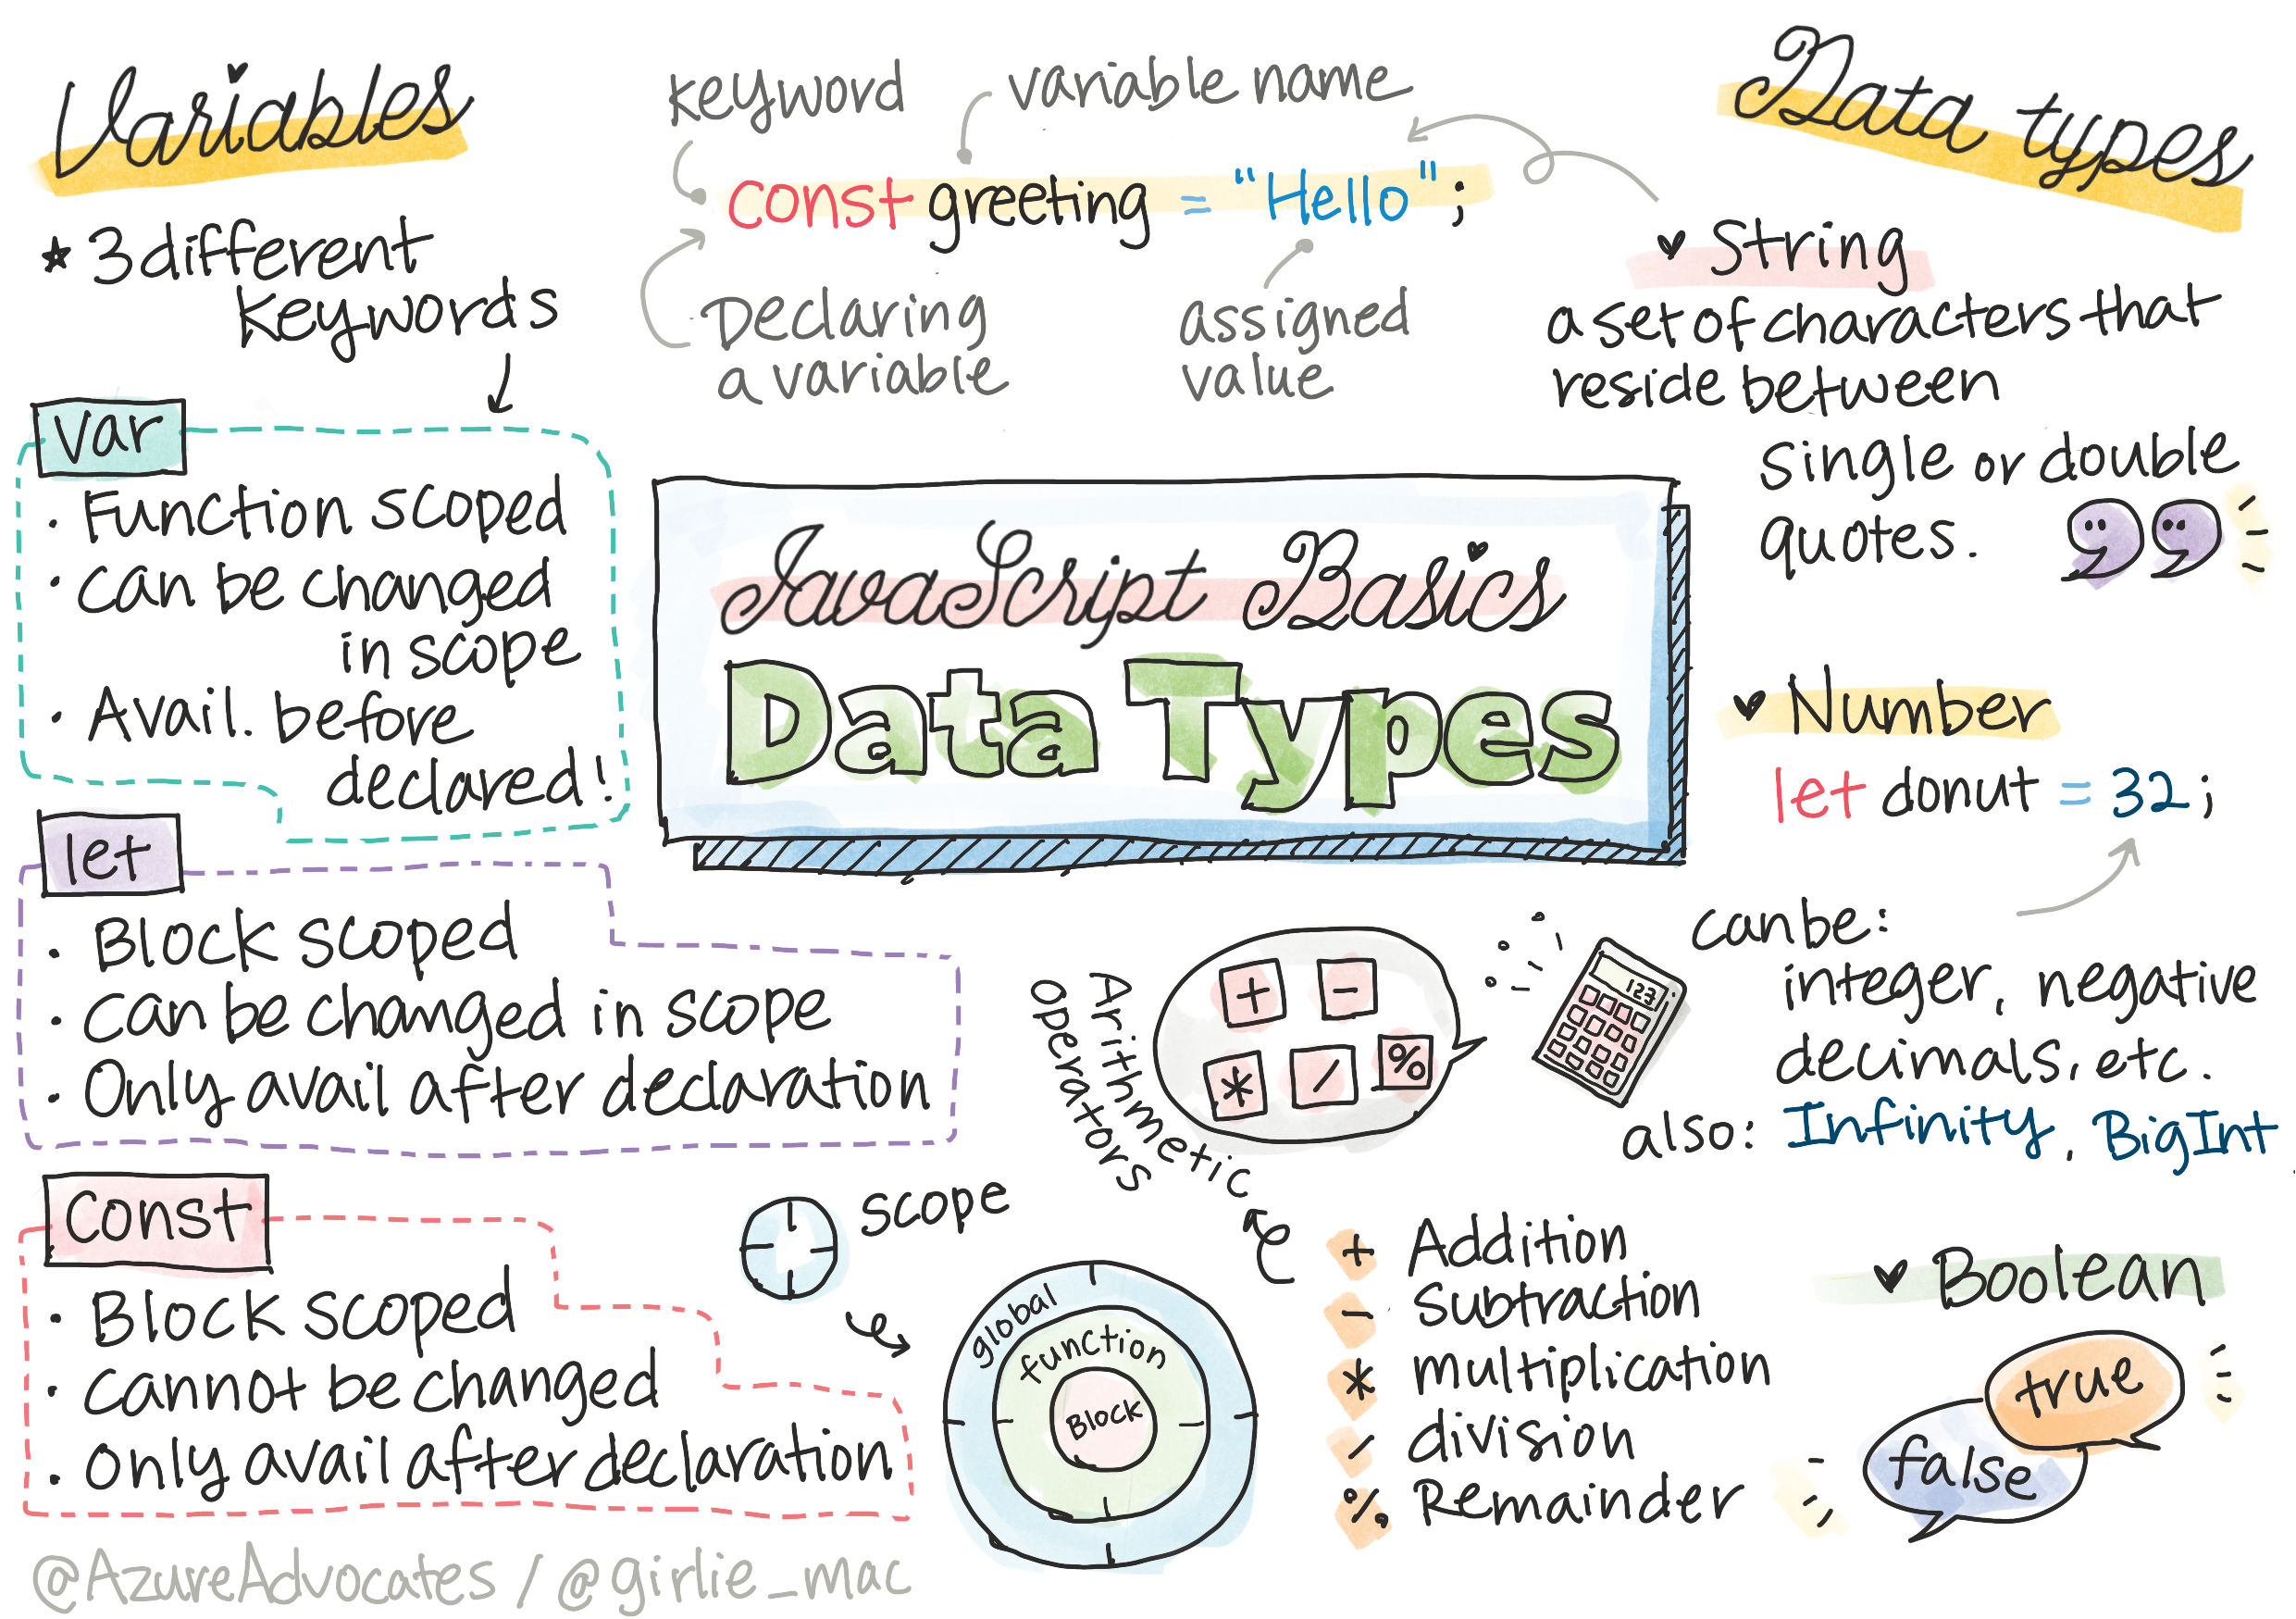 Variables
★ 3 different
keywords
var
· Function scoped
· can be changed
in scope
· Avail. before
declared!
let
· Block scoped
· can be changed in scope
· Only avail after declaration
const
· Block scoped
· cannot be changed
· only avail after declaration
@AzureAdvocates / @girlie_mac
keyword
variable name
const greeting = "Hello";
Declaring
a variable
assigned
value
JavaScript Basics
Data Types
scope
global
function
Block
Arithmetic
operators
+ -
* / %
123
+ Addition
- Subtraction
* multiplication
/ division
% Remainder
Data types
♥ String
a set of characters that
reside between
single or double
quotes.
♥ Number
let donut = 32;
can be:
integer, negative
decimals, etc.
also: Infinity, BigInt
♥ Boolean
true
false